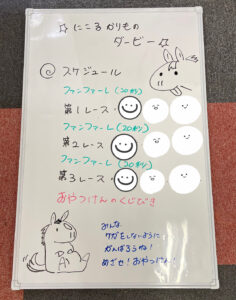 ☆ にこるかりもの
ダービー☆
◎ スケジュール
ファンファーレ(20秒)
第1レース・
ファンファーレ(20秒)
第2レース・
ファンファーレ(20秒)
第3レース・
おやつけんのくじびき
みんな
ケガをしないように
がんばろうね!
めざせ!おやつけん!